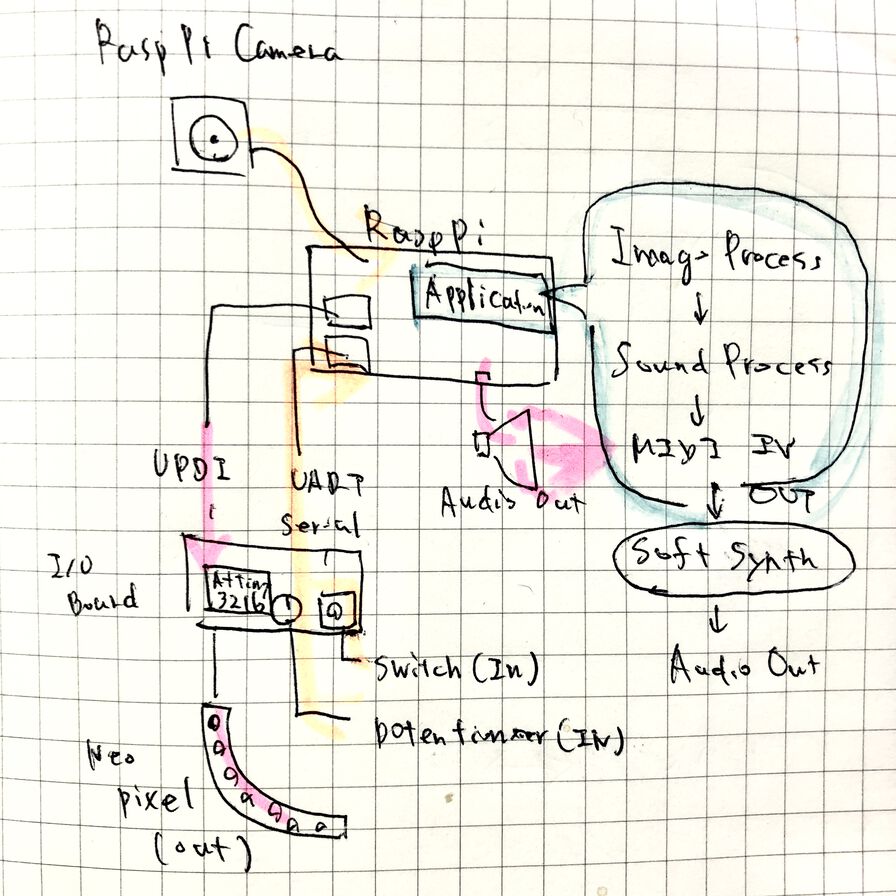 RaspPi Camera
RaspPi
Application
Image Process
↓
Sound Process
↓
MIDI IN
OUT
↓
Soft Synth
↓
Audio Out
Audio Out
UPDI
UART
Serial
I/O
Board
Attiny
3216
Switch(In)
potentimeer(IN)
Neo
pixel
(out)